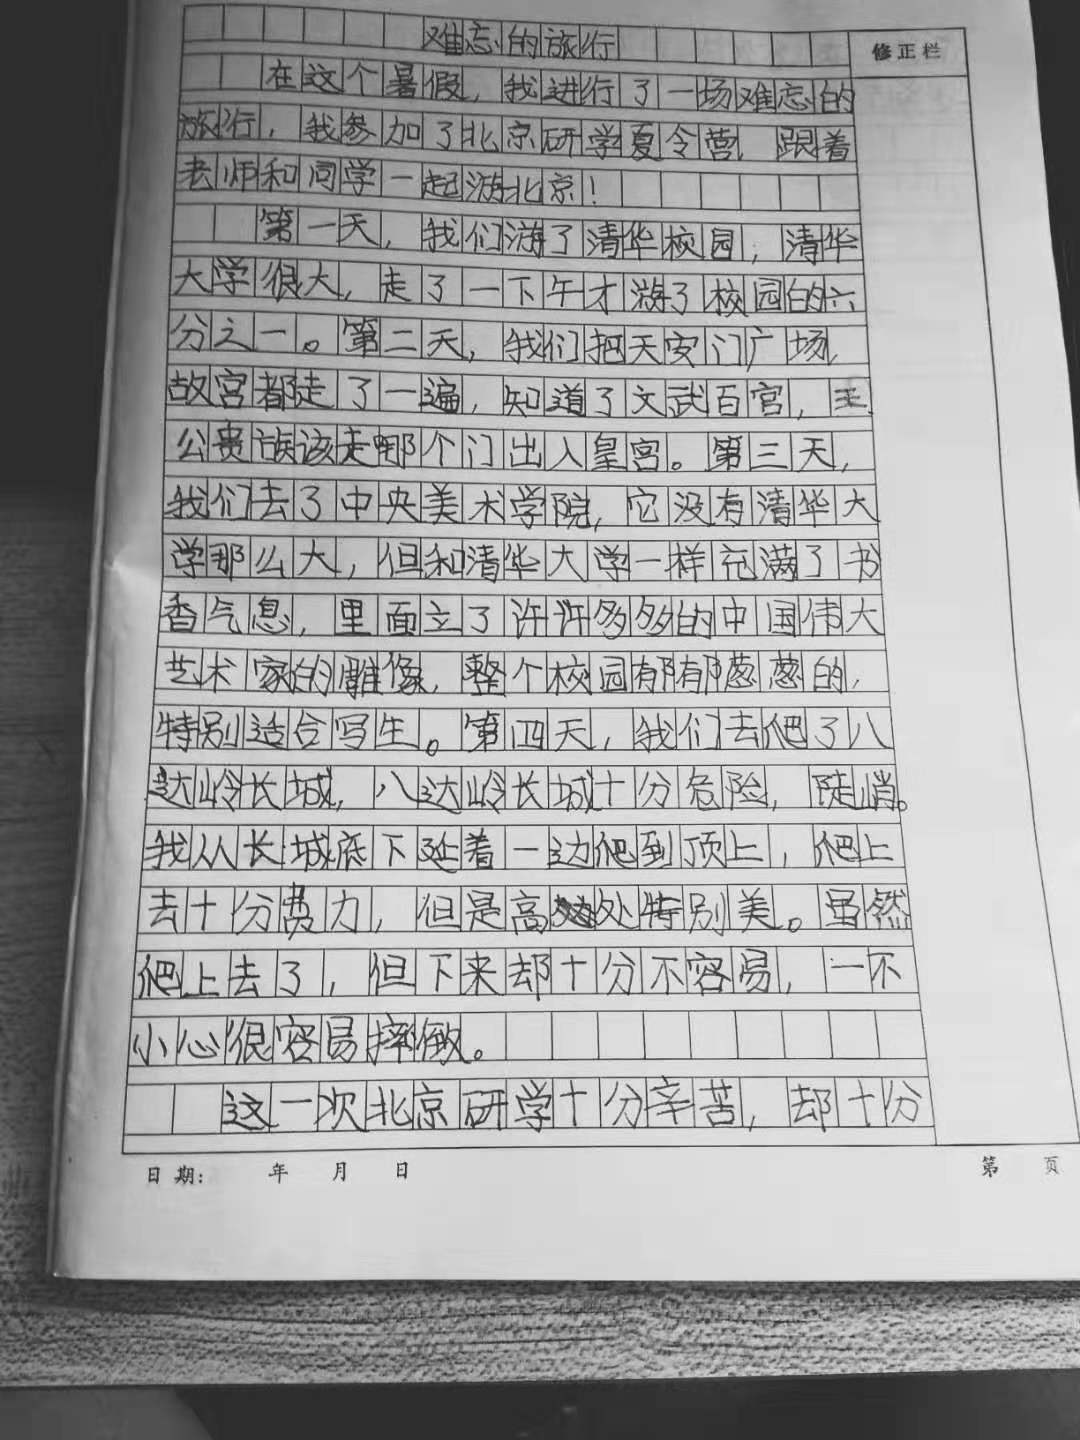 难忘的旅行
修正栏
在这个暑假,我进行了一场难忘的
旅行,我参加了北京研学夏令营,跟着
老师和同学一起游北京!
第一天,我们游了清华校园,清华
大学很大,走了一下午才游了校园的六
分之一。第二天,我们把天安门广场,
故宫都走了一遍,知道了文武百官,王
公贵族该走哪个门出入皇宫。第三天,
我们去了中央美术学院,它没有清华大
学那么大,但和清华大学一样充满了书
香气息,里面立了许许多多的中国伟大
艺术家的雕像,整个校园郁郁葱葱的,
特别适合写生。第四天,我们去爬了八
达岭长城,八达岭长城十分危险,陡峭。
我从长城底下延着一边爬到顶上,爬上
去十分费力,但是高处特别美。虽然
爬上去了,但下来却十分不容易,一不
小心很容易摔倒。
这一次北京研学十分辛苦,却十分
日期: 年 月 日
第 页